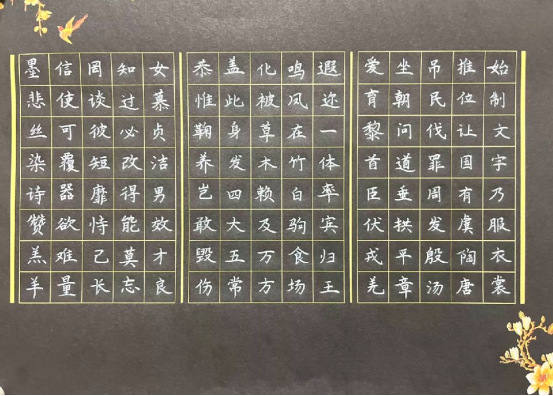 始制文字乃服衣裳
推位让国有虞陶唐
吊民伐罪周发殷汤
坐朝问道垂拱平章
爱育黎首臣伏戎羌
遐迩一体率宾归王
鸣凤在竹白驹食场
化被草木赖及万方
盖此身发四大五常
恭惟鞠养岂敢毁伤
女慕贞洁男效才良
知过必改得能莫忘
罔谈彼短靡恃己长
信使可覆器欲难量
墨悲丝染诗赞羔羊